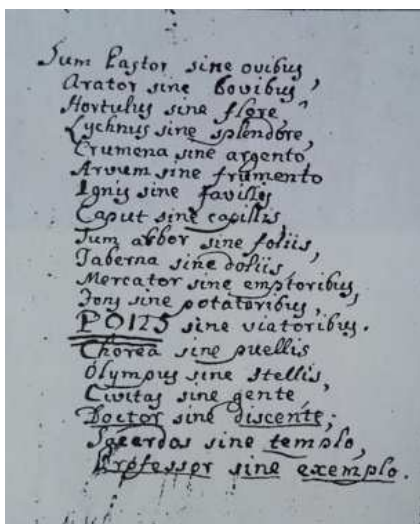 Sum Pastor sine ovibus,
Arator sine bovibus,
Hortulus sine flore,
Lychnus sine splendore,
Crumena sine argento,
Arvum sine frumento
Ignis sine favillis
Caput sine capillis,
Sum arbor sine foliis,
Taberna sine doliis
Mercator sine emptoribus,
Fons sine potatoribus,
PONS sine viatoribus.
Chorea sine puellis
Olympus sine stellis,
Civitas sine gente,
Doctor sine discente;
Sacerdos sine templo,
Professor sine exemplo.